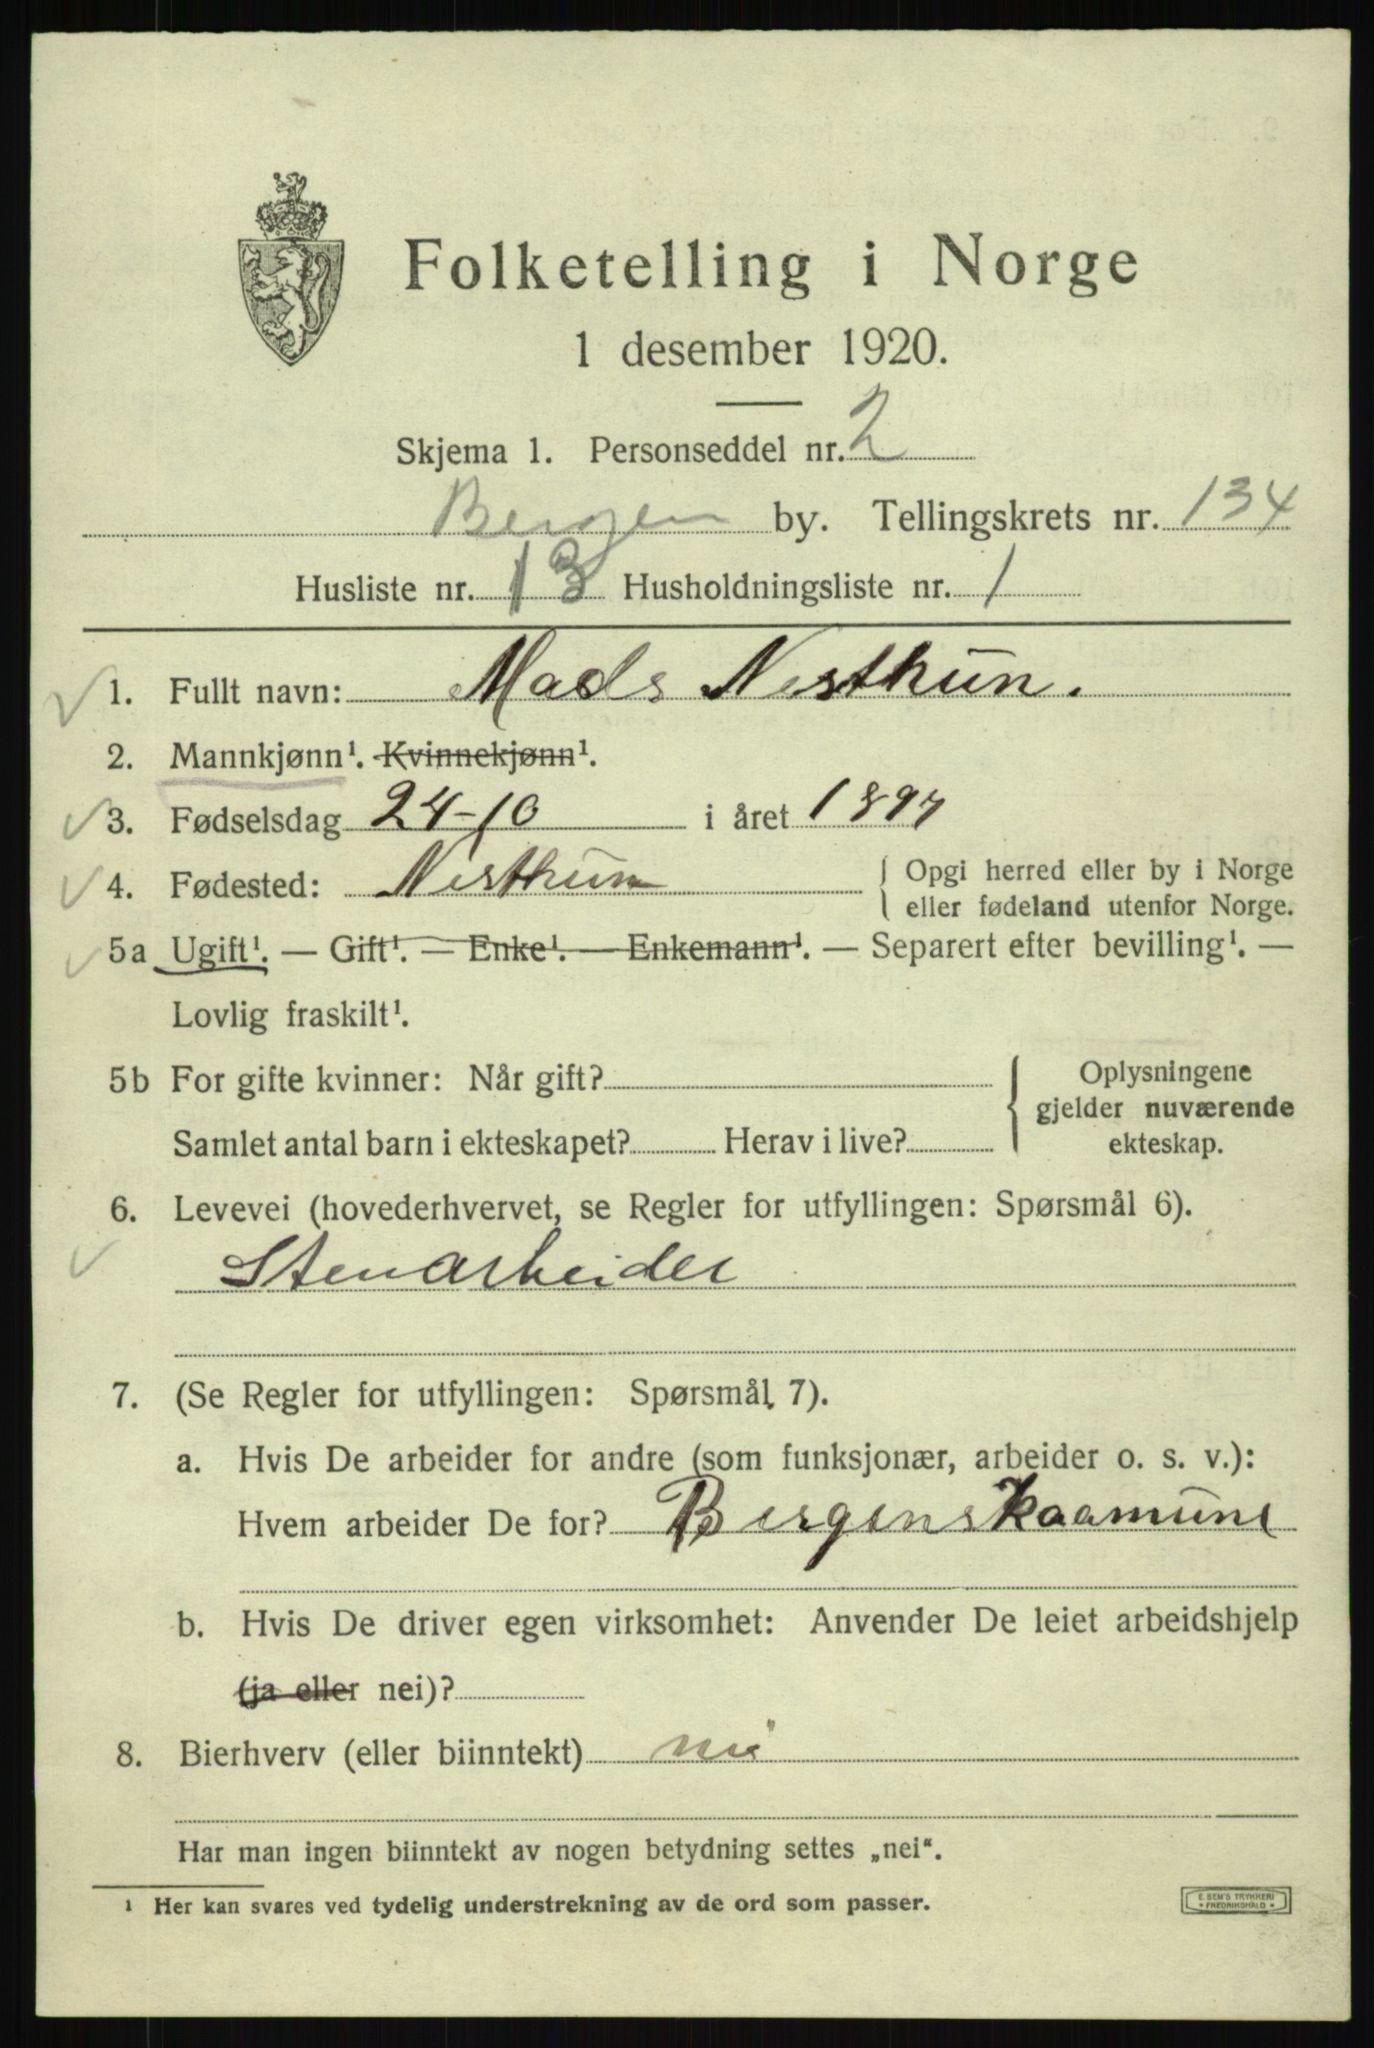 Folketelling i Norge
1 desember 1920.
Skjema 1. Personseddel nr. 2
Bergen by. Tellingskrets nr. 134
Husliste nr. 13 Husholdningsliste nr. 1
1. Fullt navn: Mads Nesthun.
2. Mannkjønn¹. Kvinnekjønn¹.
3. Fødselsdag 24-10 i året 1897
4. Fødested: Nesthun { Opgi herred eller by i Norge
eller fødeland utenfor Norge.
5a Ugift¹. — Gift¹. — Enke¹. — Enkemann¹. — Separert efter bevilling¹. —
Lovlig fraskilt¹.
5b For gifte kvinner: Når gift? { Oplysningene
gjelder nuværende
Samlet antal barn i ekteskapet? Herav i live? ekteskap.
6. Levevei (hovederhvervet, se Regler for utfyllingen: Spørsmål 6).
Stenarbeider
7. (Se Regler for utfyllingen: Spørsmål 7).
a. Hvis De arbeider for andre (som funksjonær, arbeider o. s. v.):
Hvem arbeider De for? Bergens Kaamune
b. Hvis De driver egen virksomhet: Anvender De leiet arbeidshjelp
(ja eller nei)?
8. Bierhverv (eller biinntekt) nei
Har man ingen biinntekt av nogen betydning settes „nei“.
¹ Her kan svares ved tydelig understrekning av de ord som passer.
E. SEM'S TRYKKERI
* FREDRIKSHALD *